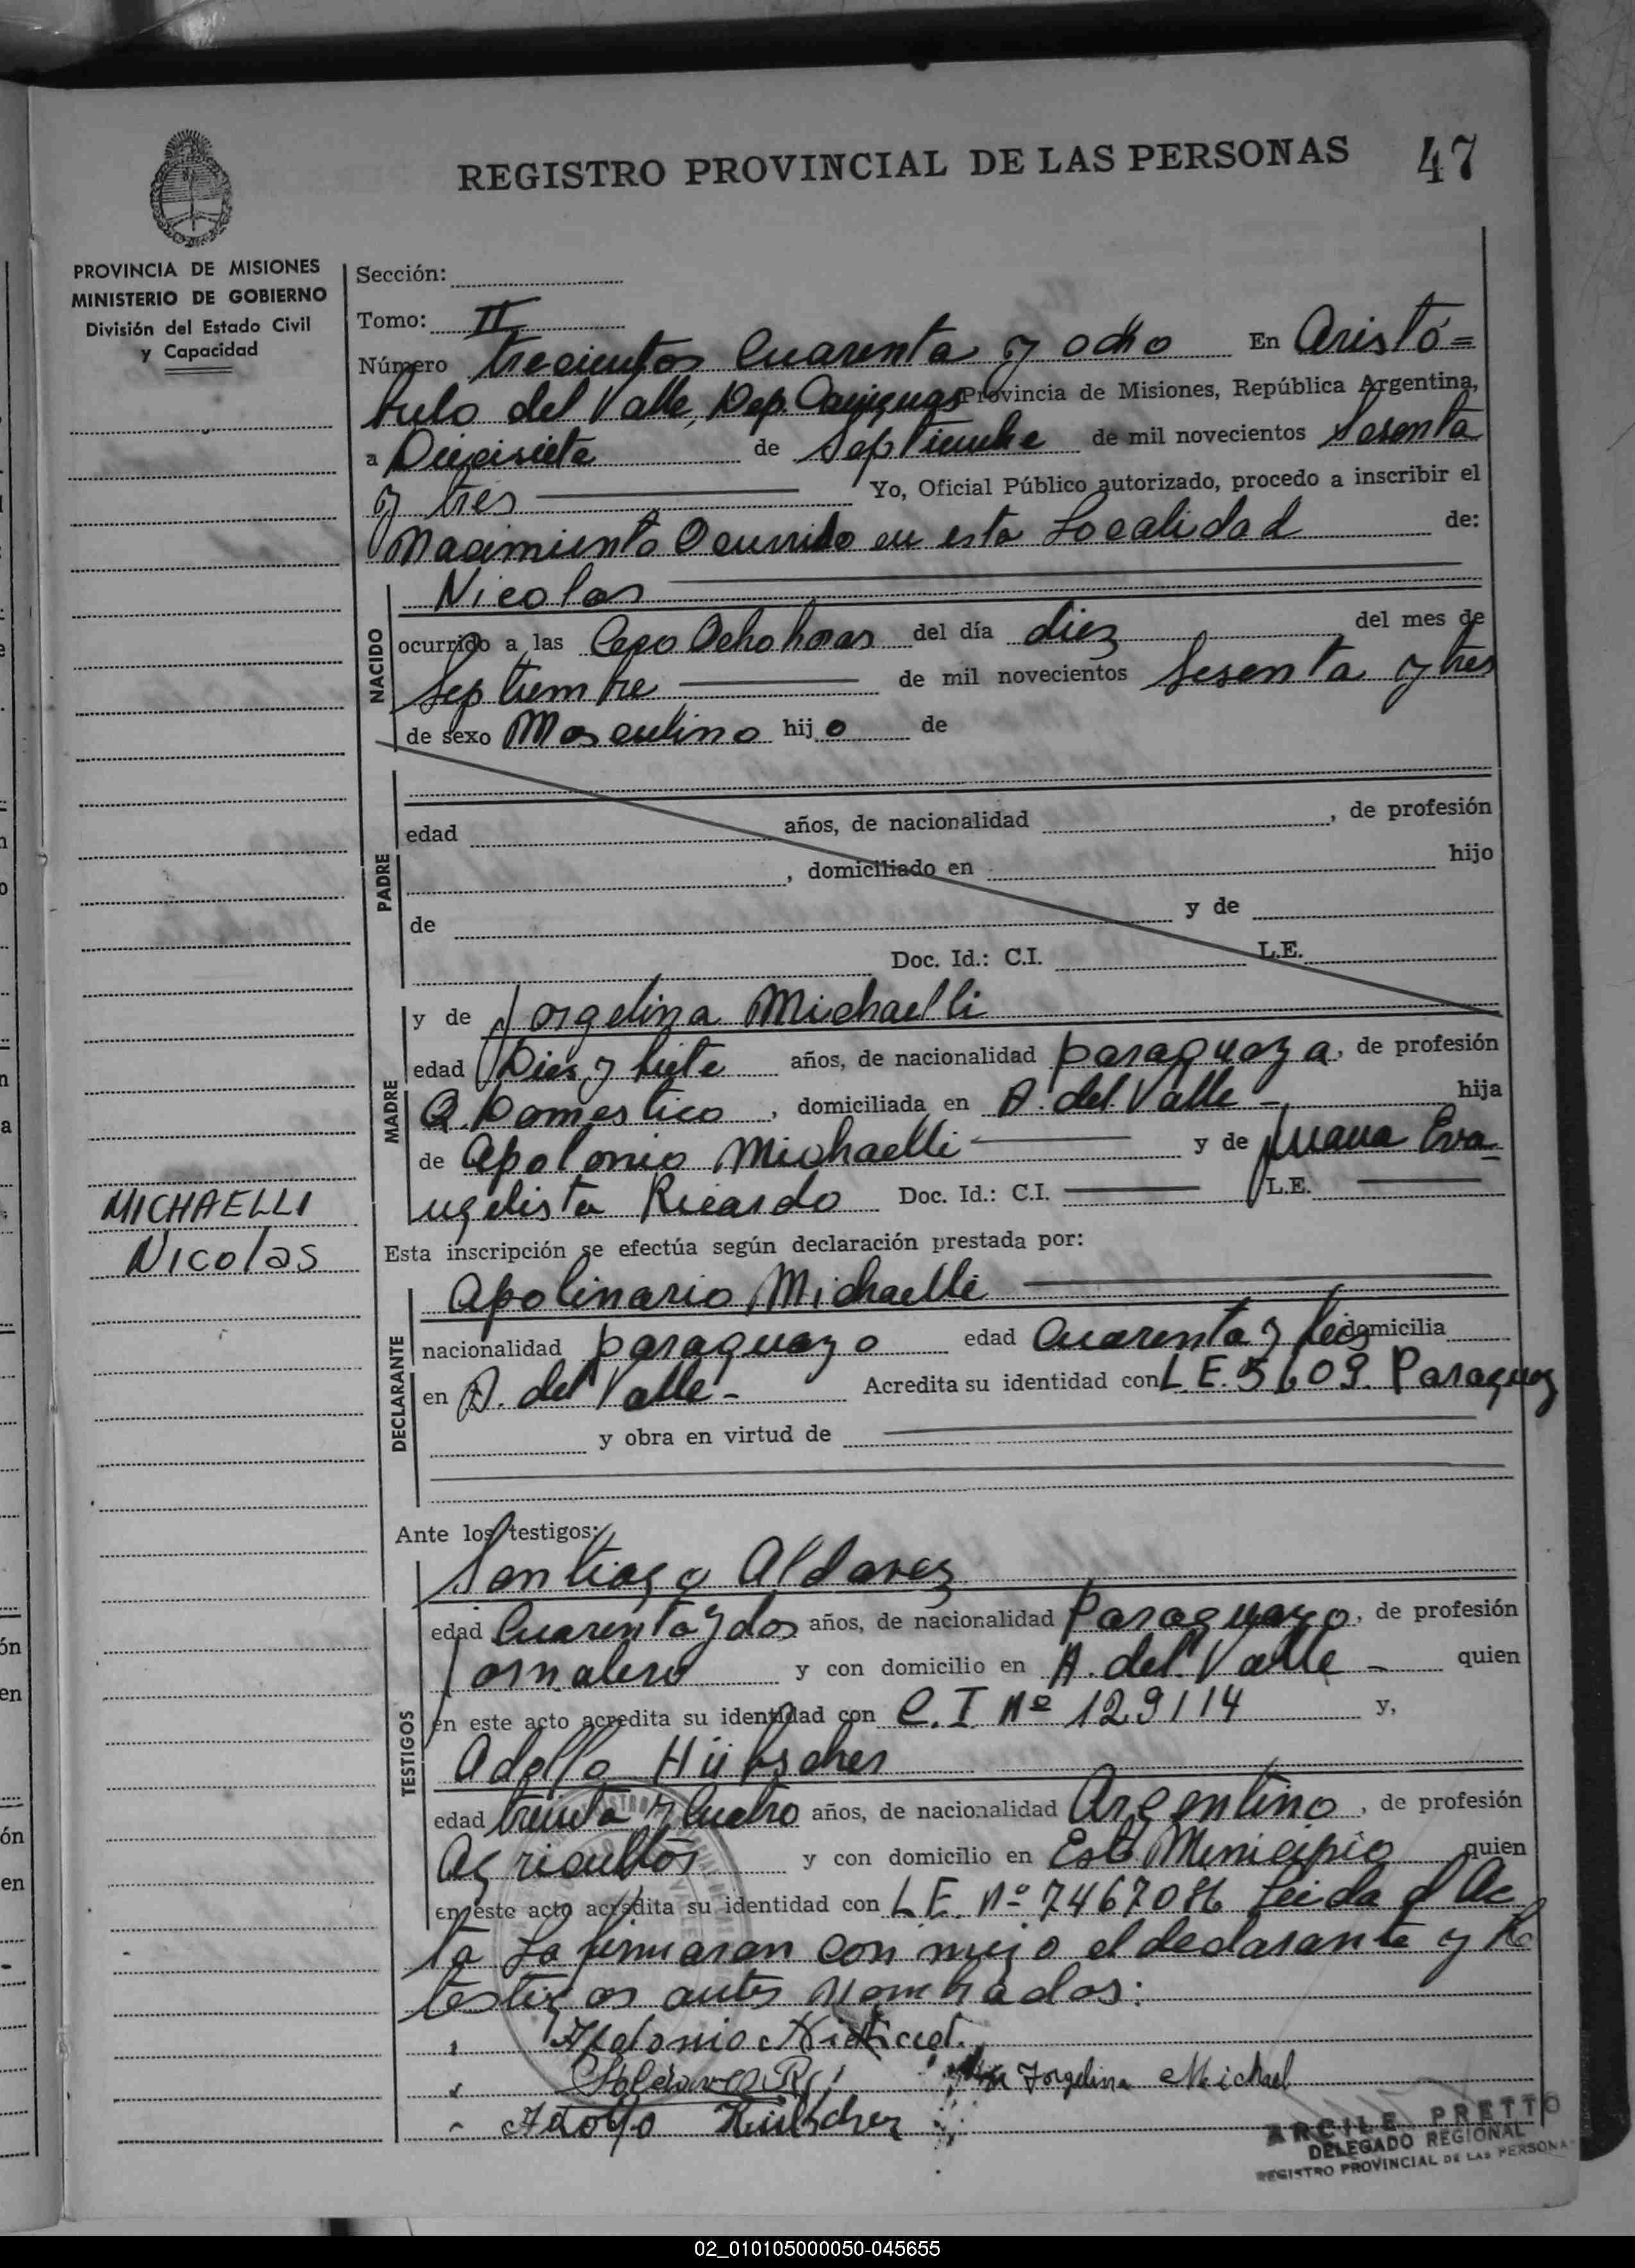 REGISTRO PROVINCIAL DE LAS PERSONAS 47
PROVINCIA DE MISIONES
MINISTERIO DE GOBIERNO
División del Estado Civil
y Capacidad
Sección:
Tomo: II
Número trecientos Cuarenta y ocho En Aristó=
bulo del Valle, Dep. Cainguas Provincia de Misiones, República Argentina,
a Diecisiete de Septiembre de mil novecientos Sesenta
y tres Yo, Oficial Público autorizado, procedo a inscribir el
Nacimiento Ocurrido en esta Localidad de:
NACIDO
Nicolas
ocurrido a las Cero Ocho horas del día diez del mes de
Septiembre de mil novecientos Sesenta y tres
de sexo Masculino hijo de
PADRE
edad años, de nacionalidad , de profesión
, domiciliado en hijo
de y de
Doc. Id.: C.I. L.E.
MADRE
y de Jorgelina Michaelli
edad Dies y siete años, de nacionalidad paraguaya, de profesión
Q. Domestico, domiciliada en A. del Valle - hija
de Apolonio Michaelli y de Juana Eva
ngelista Ricardo Doc. Id.: C.I. L.E.
MICHAELLI
Nicolas
Esta inscripción se efectúa según declaración prestada por:
DECLARANTE
Apolinario Michaelli
nacionalidad paraguayo edad Cuarenta y domicilia
en A. del Valle - Acredita su identidad con L.E. 5609. Paraguay
y obra en virtud de
Ante los testigos:
TESTIGOS
Santiago Aldarez
edad Cuarenta y dos años, de nacionalidad Paraguayo, de profesión
Jornalero y con domicilio en A. del Valle - quien
en este acto acredita su identidad con C. I. Nº 129114 y,
Adolfo Hübscher
edad treinta y Cuatro años, de nacionalidad Argentino, de profesión
Agricultor y con domicilio en Este Municipio quien
en este acto acredita su identidad con L.E. Nº 7467086 Leida el Ac
ta La firmaran con migo el declarante y lo
testigos antes nombrados:
Apolonio
Jorgelina Michael
Adolfo Hübscher
ARCILE PRETTO
DELEGADO REGIONAL
REGISTRO PROVINCIAL DE LAS PERSONA
02_010105000050-045655